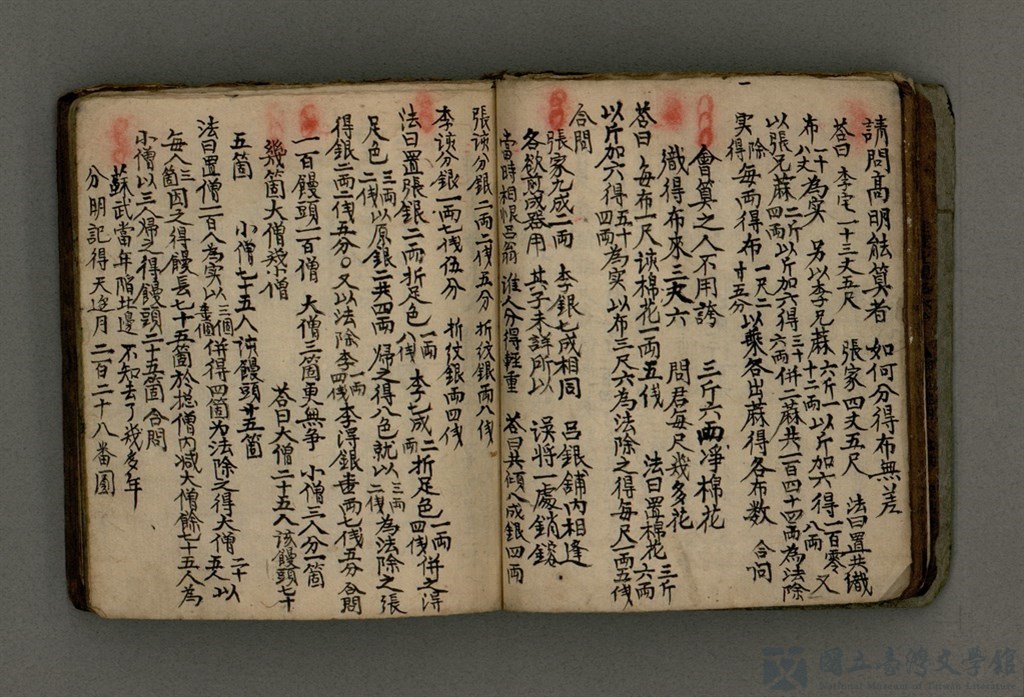 請問高明能算者 如何分得布無差
答曰 李宅一十三丈五尺 張家四丈五尺 法曰置共織
布一十八丈為實 另以李兄蔴六斤一以斤加六得一百零八兩又
以張兄蔴二斤四兩以斤加六得三十六兩併二蔴共一百四十四兩為法除
實除得每兩得布一尺二寸五分以乘各出蔴得各布數 合问
會算之人不用誇 三斤六兩凈棉花
織得布來三丈六 問君每尺幾多花
荅曰 每布一尺該棉花一兩五戋 法曰置棉花三斤六兩
以斤加六得五十四兩為实以布三尺六為法除之得每尺一兩五戋
合問
張家九成二兩 李銀七成相同 呂銀鋪内相逢
各欲煎成器用 其子未詳所以 误將一處銷鎔
當時相恨呂翁 誰人分得輕重 荅曰共傾八成銀四兩
張該分銀二兩二戋五分 折紋銀一兩八戋
李该分銀一兩七戋伍分 折紋銀一兩四戋
法曰置張銀二兩折足色一兩八戋 李七成二兩折足色一兩四戋併之淂
足色三兩二戋以原銀二共四兩歸之得八色就以三兩二戋為法除之張
得銀二兩二戋五分○又以法除李一兩四戋李淂銀壹两七戋五分 合問
一百饅頭一百僧 大僧三箇更無争 小僧三人分一箇
幾箇大僧幾小僧 荅曰大僧二十五人 该饅頭七十
五箇 小僧七十五人 该饅頭廿五箇
法曰置僧一百人為実以三個壹個併得四箇為法除之得大僧二十五人以
每人三箇因之得饅長七十五箇於捴僧内减大僧餘七十五人為
小僧以三人歸之得饅頭二十五箇 合問
蘇武當年陷北邊 不知去了幾多年
分明記得天邊月 二百二十八番圓
國立臺灣文學館
National Museum of Taiwan Literature